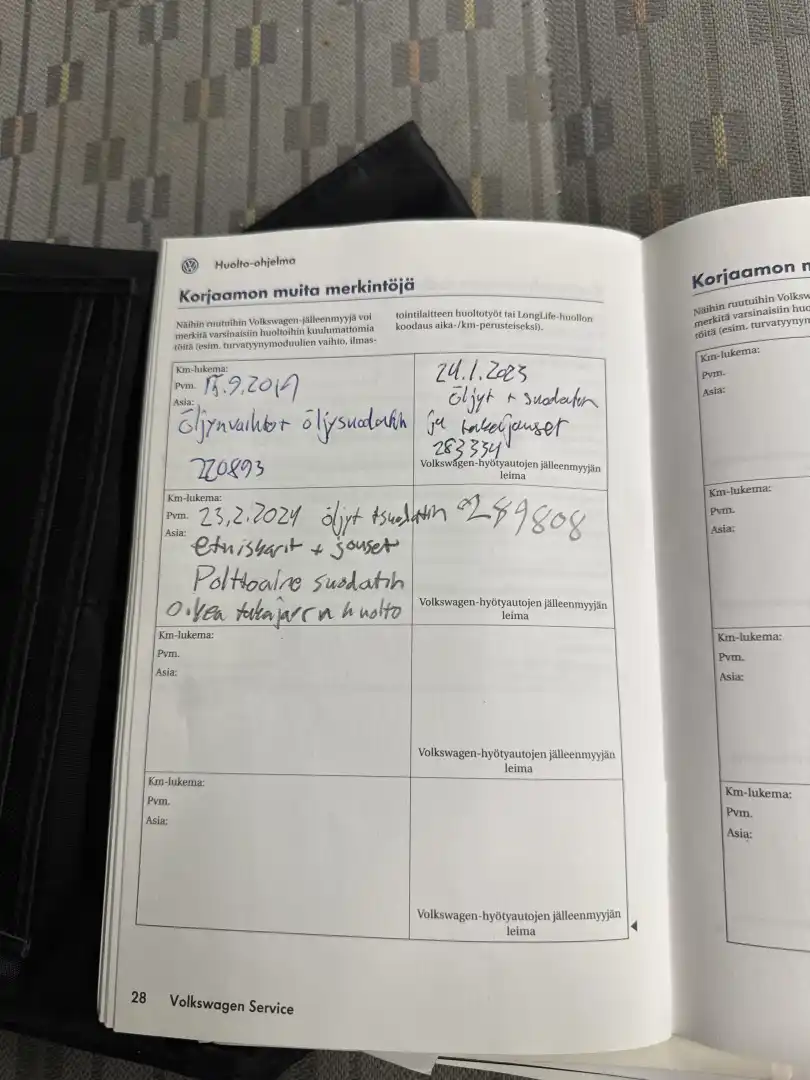 Huolto-ohjelma
Korjaamon muita merkintöjä
Näihin ruutuihin Volkswagen-jälleenmyyjä voi
merkitä varsinaisiin huoltoihin kuulumattomia
töitä (esim. turvatyynymoduulien vaihto, ilmas-
tointilaitteen huoltotyöt tai LongLife-huollon
koodaus aika-/km-perusteiseksi).
Km-lukema:
Pvm. 15.9.2019
Asia:
öljynvaihto+ öljysuodatin
220893
24.1.2023
öljyt + suodatin
ja takajouset
283334
Volkswagen-hyötyautojen jälleenmyyjän
leima
Km-lukema:
Pvm. 23,2.2024 öljyt +suodatin 289808
Asia:
etuiskarit + jouset
Polttoaine suodatin
Oikea takajarrun huolto
Volkswagen-hyötyautojen jälleenmyyjän
leima
Km-lukema:
Pvm.
Asia:
Volkswagen-hyötyautojen jälleenmyyjän
leima
Km-lukema:
Pvm.
Asia:
Volkswagen-hyötyautojen jälleenmyyjän
leima
28 Volkswagen Service
Korjaamon
Näihin ruutuihin
merkitä varsinaisiin
töitä (esim.
Km-lukema:
Pvm.
Asia:
Km-lukema:
Pvm.
Asia:
Km-lukema:
Pvm.
Asia:
Km-lukema:
Pvm.
Asia: